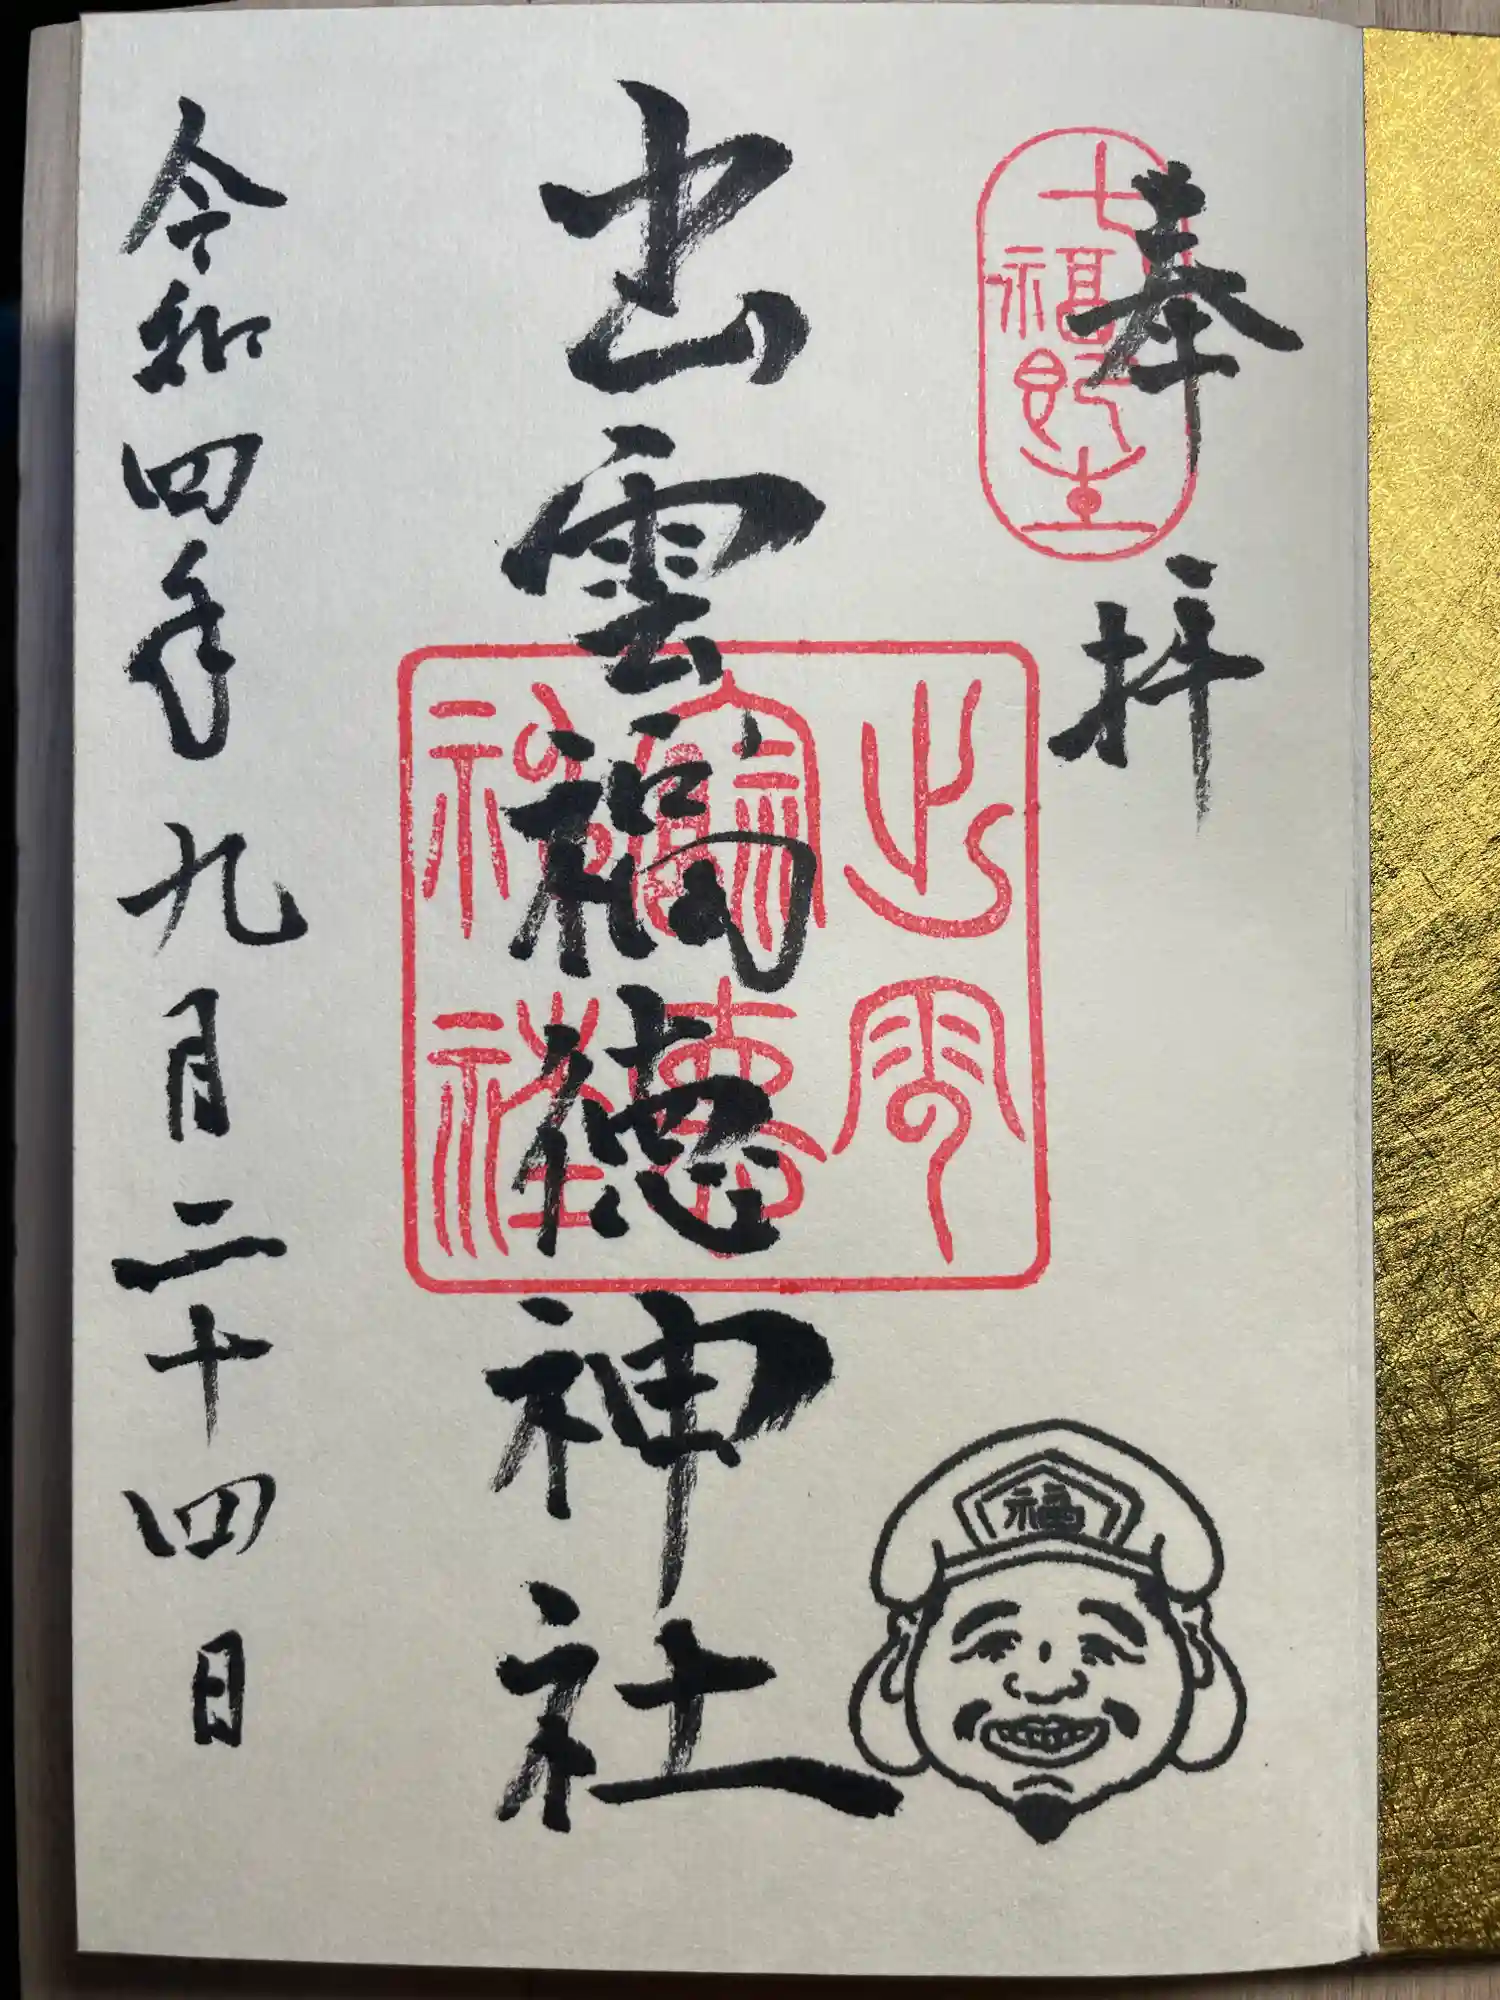 奉拝
七福即生
出雲福徳神社
出雲福徳神社
福
令和四年九月二十四日